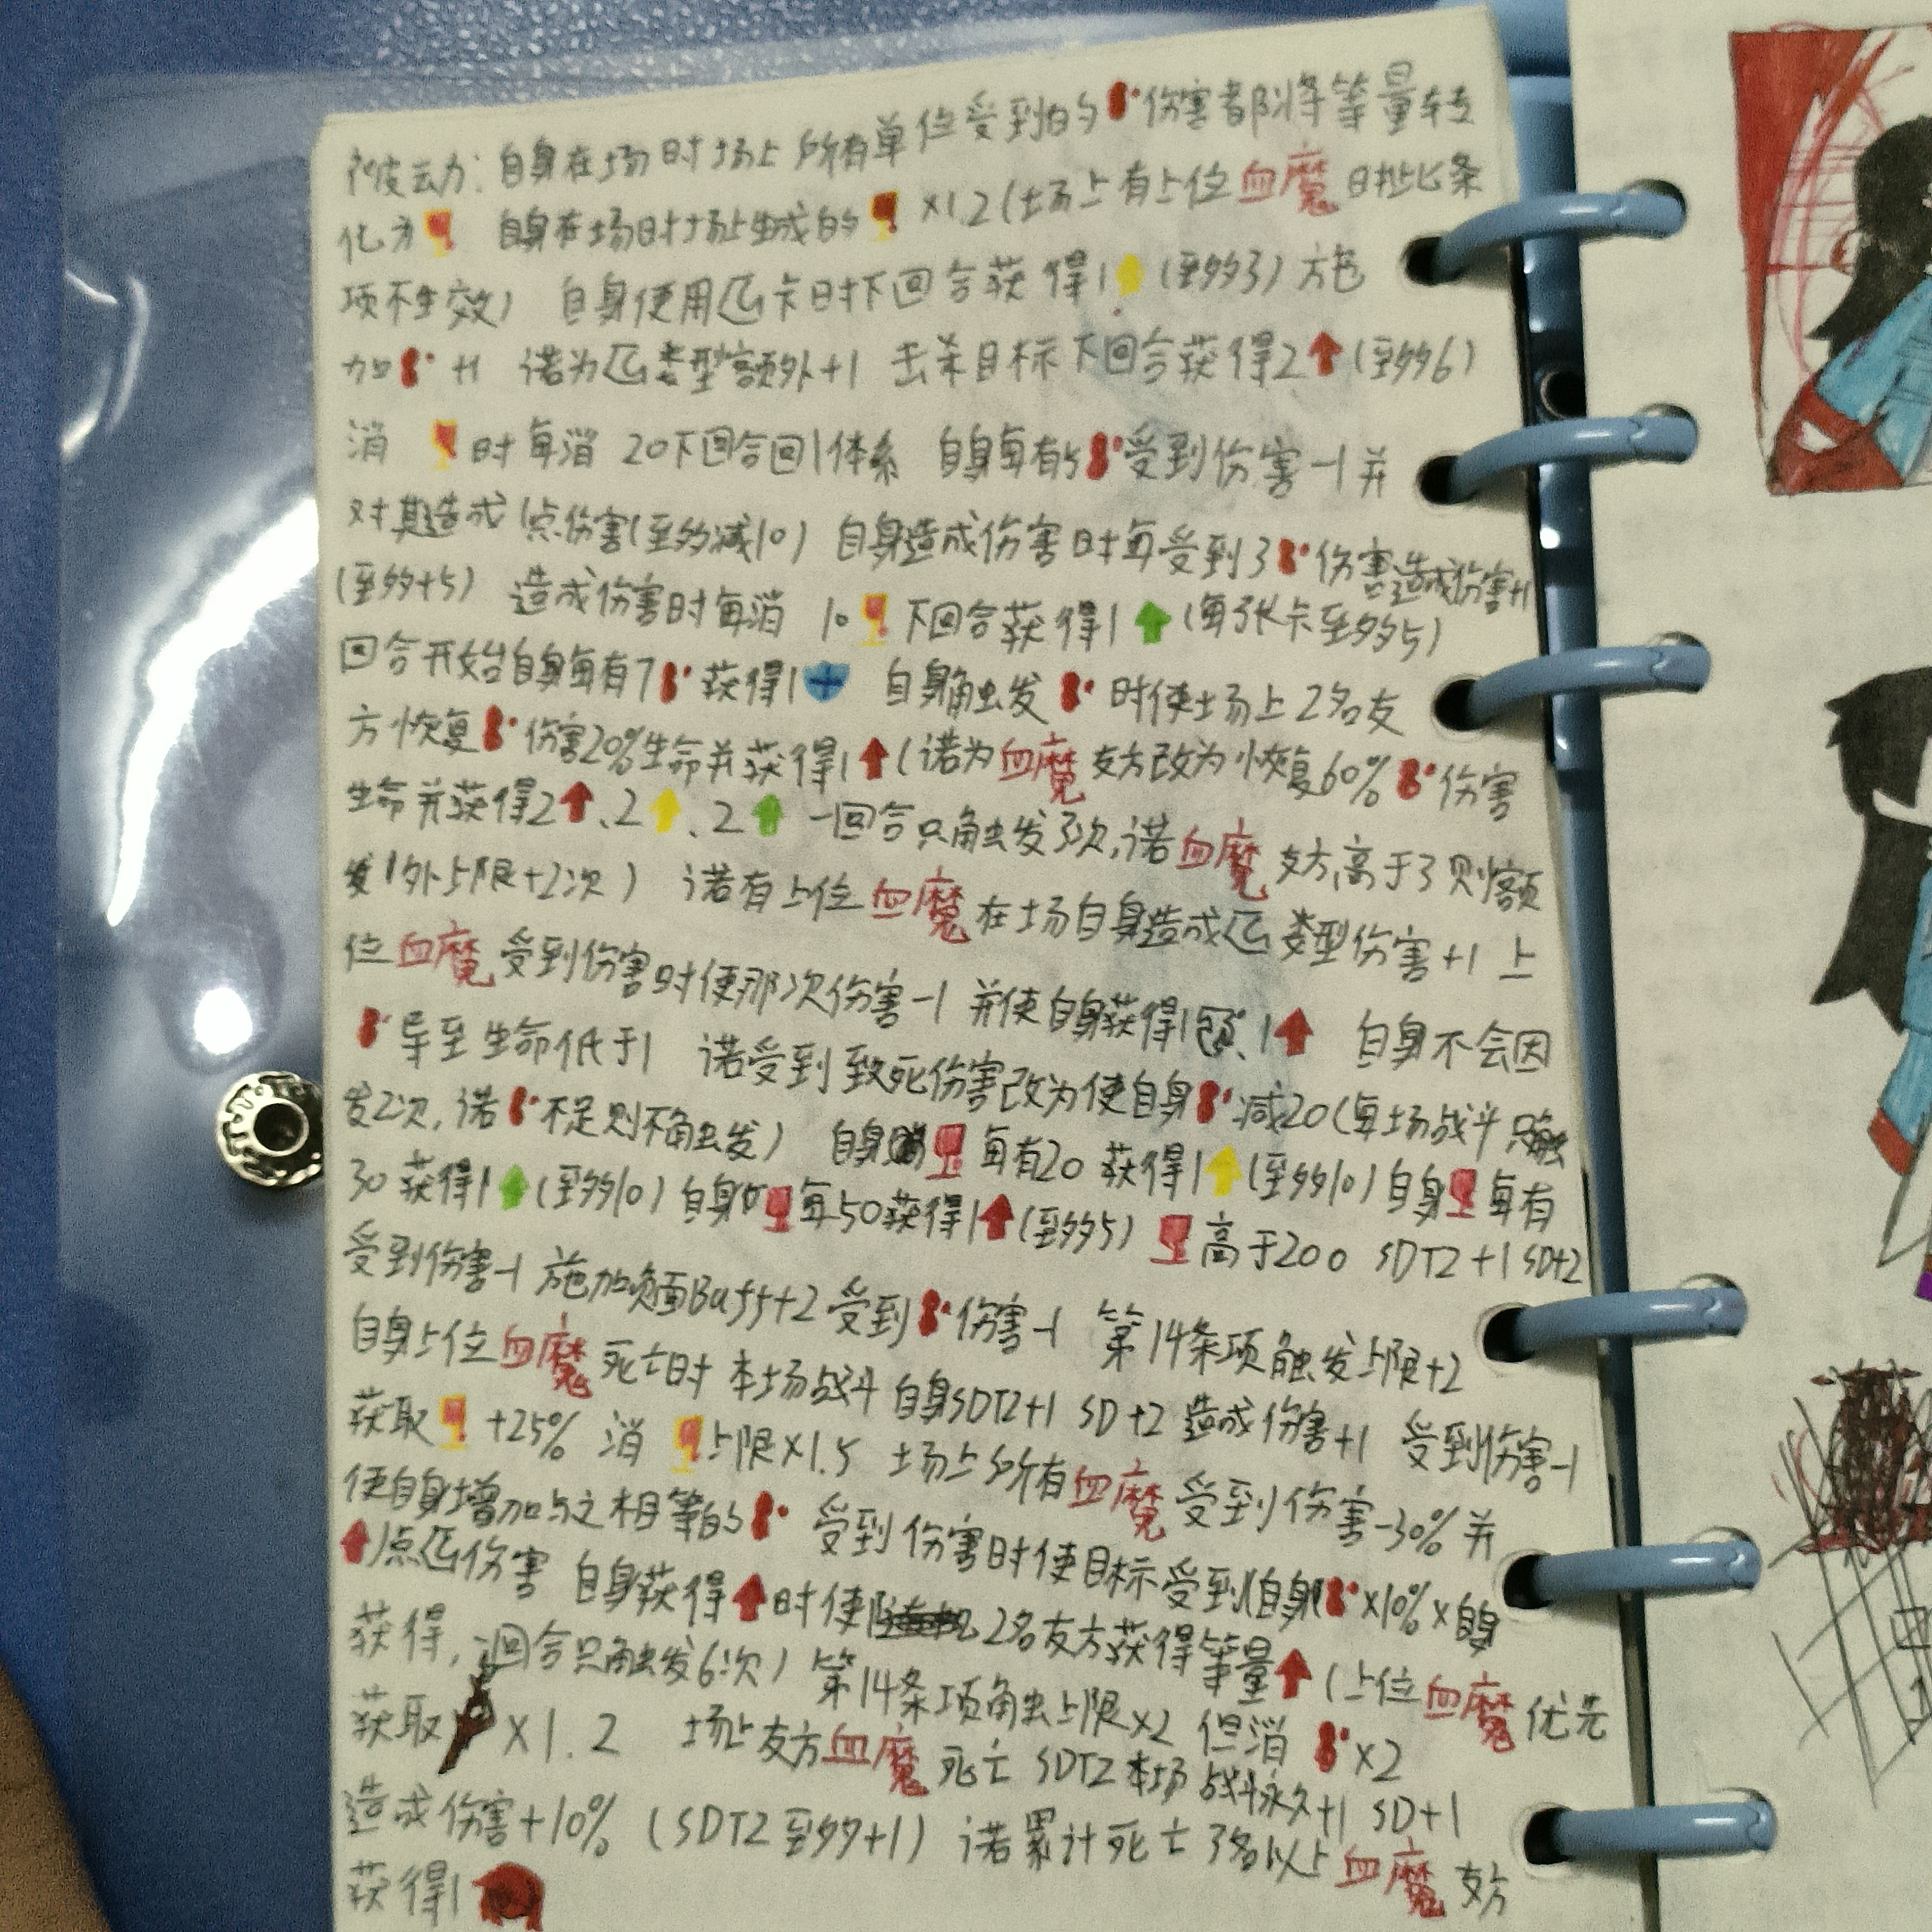 被动：自身在场时场上所有单位受到的伤害都将等量转
化为 自身在场时场上生成的 ×1.2(场上有上位血魔时此条
项不生效) 自身使用 卡时下回合获得1 (至多3) 施
加 +1 诺为 类型额外+1 击杀目标下回合获得2 (至多6)
消 时每消 20下回合回1体系 自身每有5 受到伤害-1并
对其造成1点伤害(至多减10) 自身造成伤害时每受到3 伤害造成伤害+1
(至多+5) 造成伤害时每消 10 下回合获得1 (每张卡至多5)
回合开始自身每有7 获得1 自身触发 时使场上2名友
方恢复 伤害20%生命并获得1 (诺为血魔友方改为恢复60% 伤害
生命并获得2 、2 、2 一回合只触发3次,诺血魔友方高于3则额
外上限+2次) 诺有上位血魔在场自身造成 类型伤害+1 上
位血魔受到伤害时使那次伤害-1 并使自身获得1 、1 自身不会因
导至生命低于1 诺受到致死伤害改为使自身 减20(每场战斗只触
发2次,诺 不足则不触发) 自身 每有20 获得1 (至多10) 自身 每有
30 获得1 (至多10) 自身 每50获得1 (至多5) 高于200 SDT2+1 SD+2
受到伤害-1 施加负面Buff+2 受到 伤害-1 第14条项触发上限+2
自身上位血魔死亡时 本场战斗自身SDT2+1 SD+2 造成伤害+1 受到伤害-1
获取 +25% 消 上限×1.5 场上所有血魔受到伤害-30%并
使自身增加与之相等的 受到伤害时使目标受到(自身 ×10%×自身
)点 伤害 自身获得 时使 2名友方获得等量 (上位血魔优先
获得,一回合只触发6次) 第14条项触上限×2 但消 ×2
获取 ×1.2 场上友方血魔死亡 SDT2本场战斗永久+1 SD+1
造成伤害+10% (SDT2至多+1) 诺累计死亡3名以上血魔友方
获得1